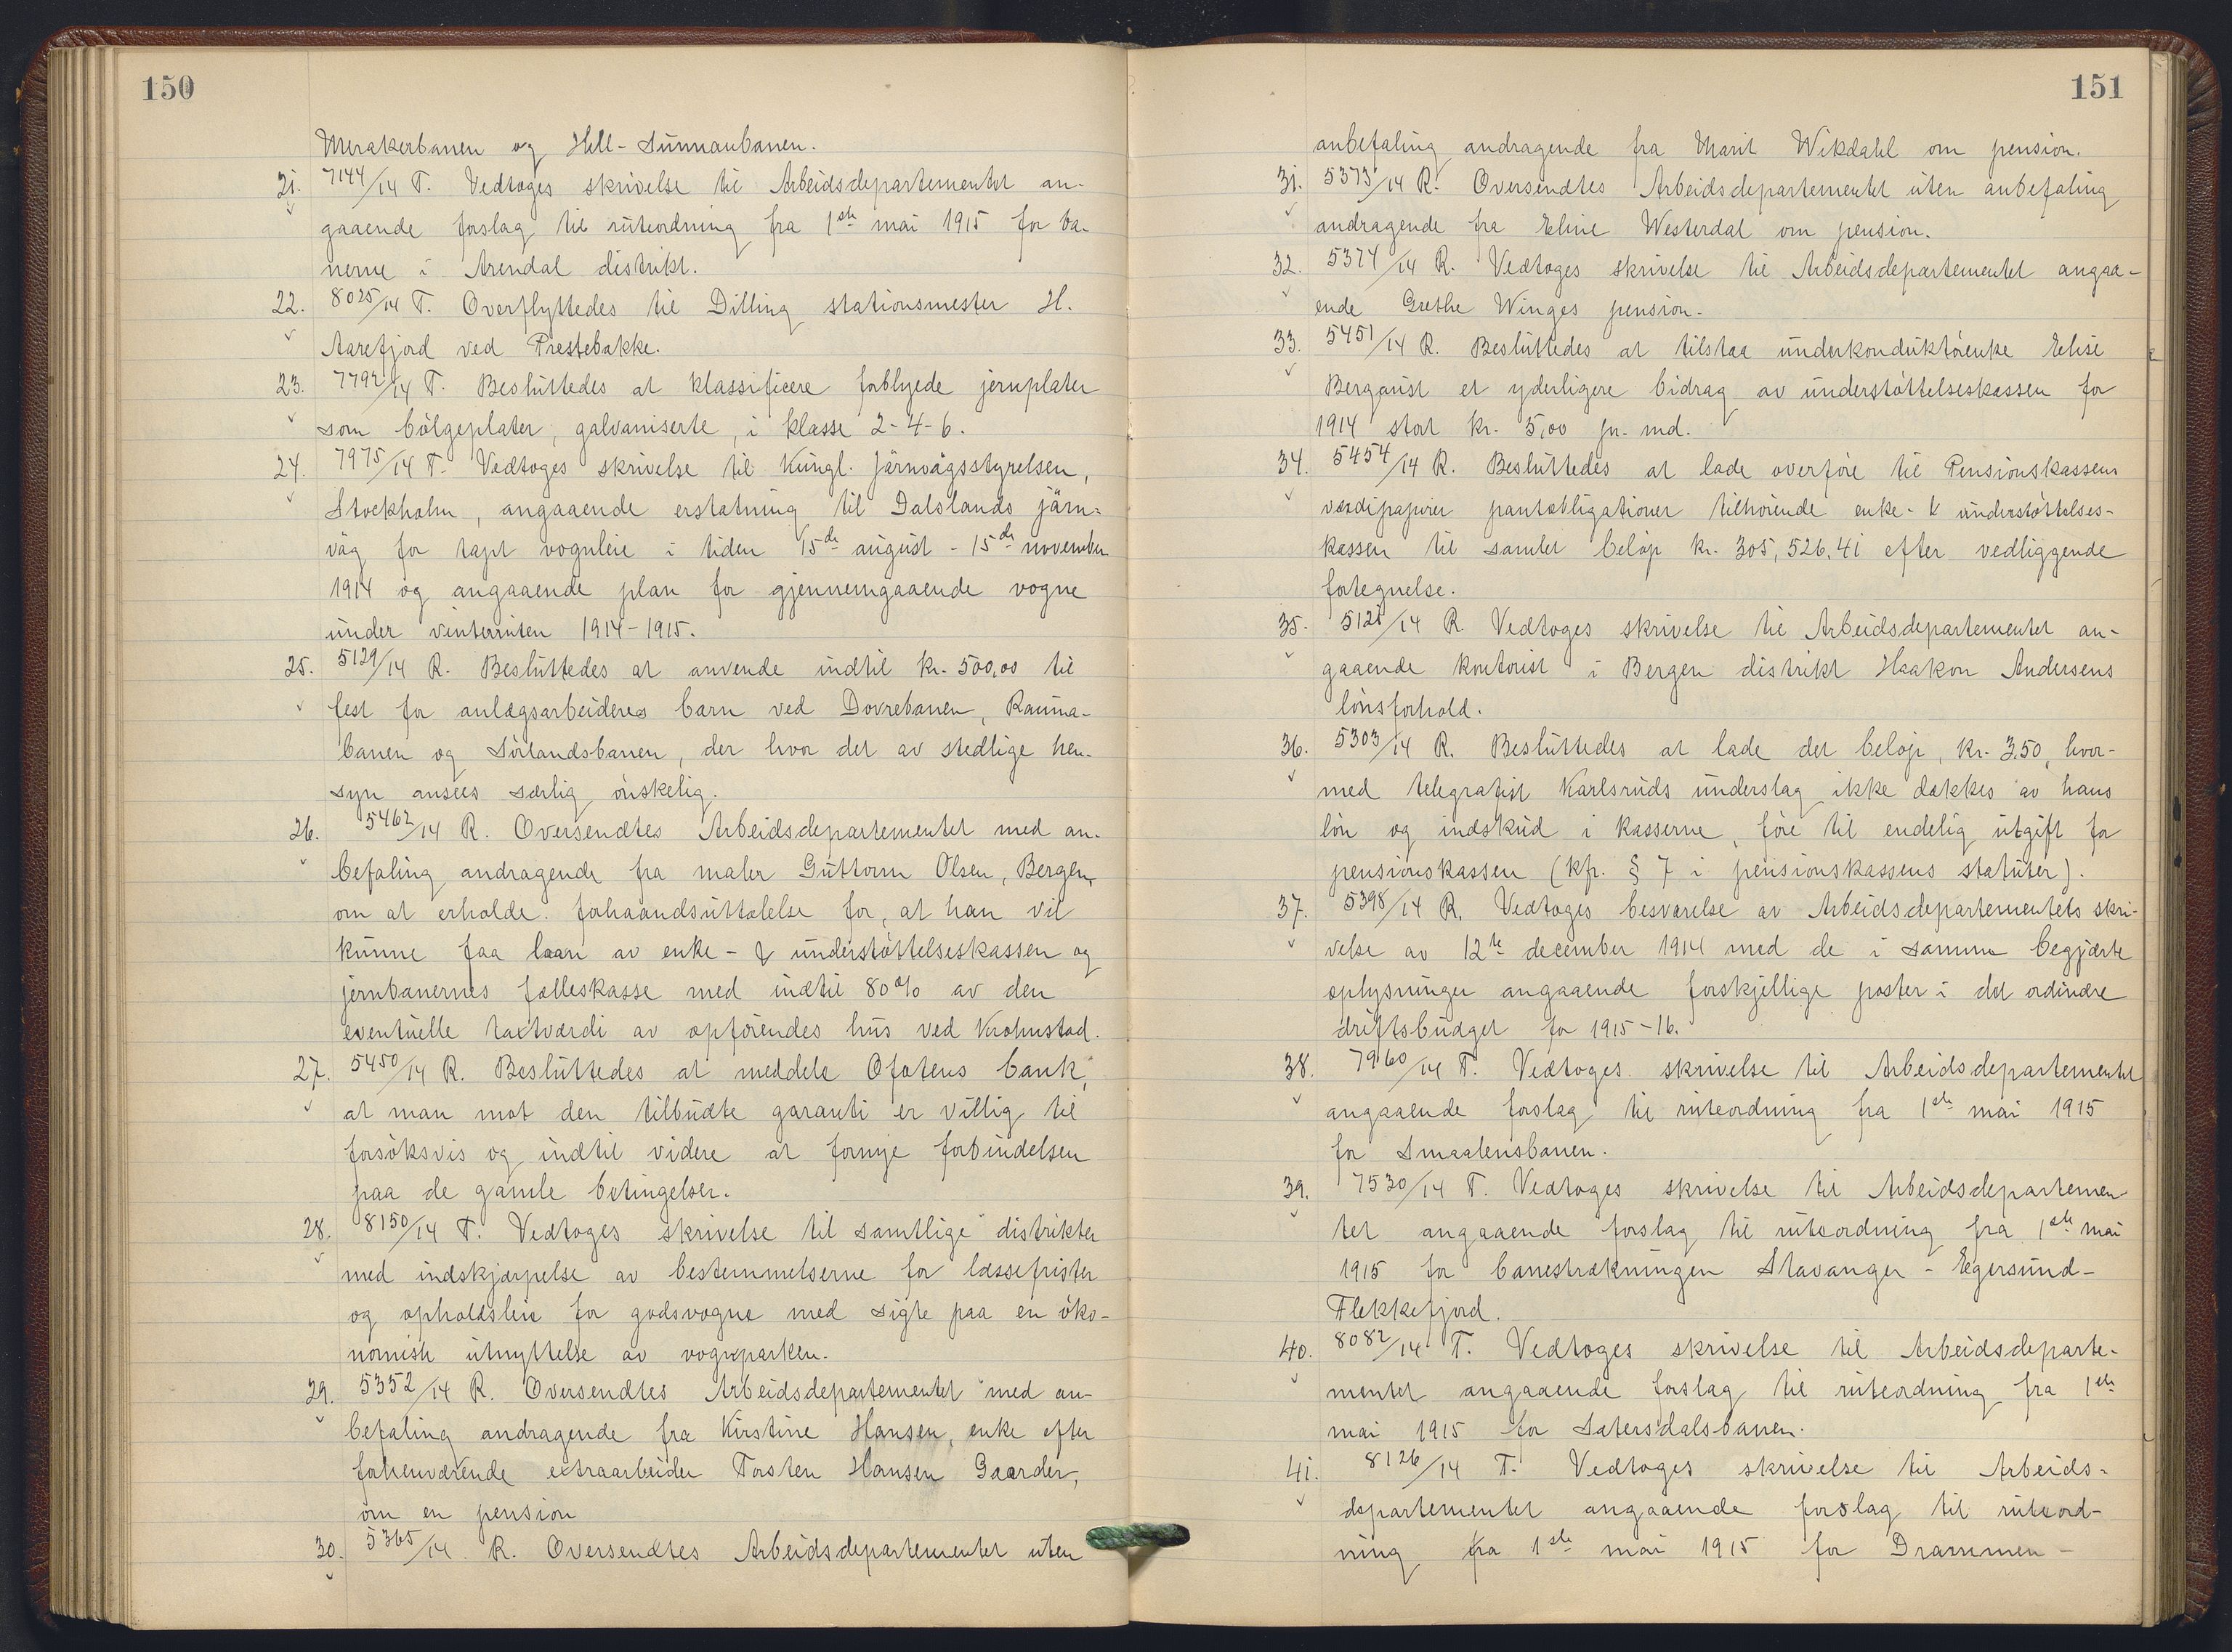 150
Merakerbanen og Hell-Sunnanbanen.
21. 7144/14 T. Vedtoges skrivelse til Arbeidsdepartementet an-
gaaende forslag til ruteordning fra 1ste mai 1915 for ba-
nerne i Arendal distrikt.
22. 8025/14 T. Overflyttedes til Dilling stationsmester H.
Aarefjord ved Prestebakke.
23. 7792/14 T. Besluttedes at klassificere forblyede jernplater
som bölgeplater, galvaniserte, i klasse 2-4-6.
24. 7975/14 T. Vedtoges skrivelse til Kungl. Järnvägsstyrelsen,
Stockholm, angaaende erstatning til Dalslands järn-
väg for tapt vognleie i tiden 15de august - 15de november
1914 og angaaende plan for gjennemgaaende vogne
under vinterruten 1914-1915.
25. 5129/14 R. Besluttedes at anvende indtil kr. 500,00 til
fest for anlægsarbeideres barn ved Dovrebanen, Rauma-
banen og Sörlandsbanen, der hvor det av stedlige hen-
syn ansees særlig önskelig.
26. 5462/14 R. Oversendtes Arbeidsdepartementet med an-
befaling andragende fra maler Guttorm Olsen, Bergen,
om at erholde forhaandsuttalelse for, at han vil
kunne faa laan av enke- & understöttelseskassen og
jernbanernes fælleskasse med indtil 80% av den
eventuelle taxtværdi av opförendes hus ved Kronstad.
27. 5450/14 R. Besluttedes at meddele Ofotens bank,
at man mot den tilbudte garanti er villig til
forsöksvis og indtil videre at fornye forbindelsen
paa de gamle betingelser.
28. 8150/14 T. Vedtoges skrivelse til samtlige distrikter
med indskjærpelse av bestemmelserne for læssefrister
og opholdsleie for godsvogne med sigte paa en öko-
nomisk utnyttelse av vognparken.
29. 5352/14 R. Oversendtes Arbeidsdepartementet med an-
befaling andragende fra Kirstine Hansen, enke efter
forhenværende extraarbeider Torsten Hansen Gaarder,
om en pension
30. 5365/14 R. Oversendtes Arbeidsdepartementet uten
151
anbefaling andragende fra Marit Wikdahl om pension.
31. 5373/14 R. Oversendtes Arbeidsdepartementet uten anbefaling
andragende fra Eline Westerdal om pension.
32. 5374/14 R. Vedtoges skrivelse til Arbeidsdepartementet angaa-
ende Grethe Winges pension.
33. 5451/14 R. Besluttedes at tilstaa underkonduktörenke Elise
Bergquist et yderligere bidrag av understöttelseskassen for
1914 stort kr. 5,00 pr. md.
34. 5454/14 R. Besluttedes at lade overföre til Pensionskassens
værdipapirer pantobligationer tilhörende enke- & understöttelses-
kassen til samlet belöp kr. 305,526.41 efter vedliggende
fortegnelse.
35. 5121/14 R Vedtoges skrivelse til Arbeidsdepartementet an-
gaaende kontorist i Bergen distrikt Haakon Andersens
lönsforhold.
36. 5303/14 R. Besluttedes at lade det belöp, kr. 3.50, hvor-
med telegrafist Karlsruds underslag ikke dækkes av hans
lön og indskud i kasserne, före til endelig utgift for
pensionskassen (kfr. § 7 i pensionskassens statuter).
37. 5398/14 R. Vedtoges besvarelse av Arbeidsdepartementets skri-
velse av 12te december 1914 med de i samme begjærte
oplysninger angaaende forskjellige poster i det ordinære
driftsbudget for 1915-16.
38. 7960/14 T. Vedtoges skrivelse til Arbeidsdepartementet
angaaende forslag til ruteordning fra 1ste mai 1915
for Smaalensbanen.
39. 7530/14 T. Vedtoges skrivelse til Arbeidsdepartemen-
tet angaaende forslag til ruteordning fra 1ste mai
1915 for banestrækningen Stavanger - Egersund-
Flekkefjord.
40. 8082/14 T. Vedtoges skrivelse til Arbeidsdeparte-
mentet angaaende forslag til ruteordning fra 1ste
mai 1915 for Setersdalsbanen.
41. 8126/14 T. Vedtoges skrivelse til Arbeids-
departementet angaaende forslag til ruteord-
ning fra 1ste mai 1915 for Drammen-